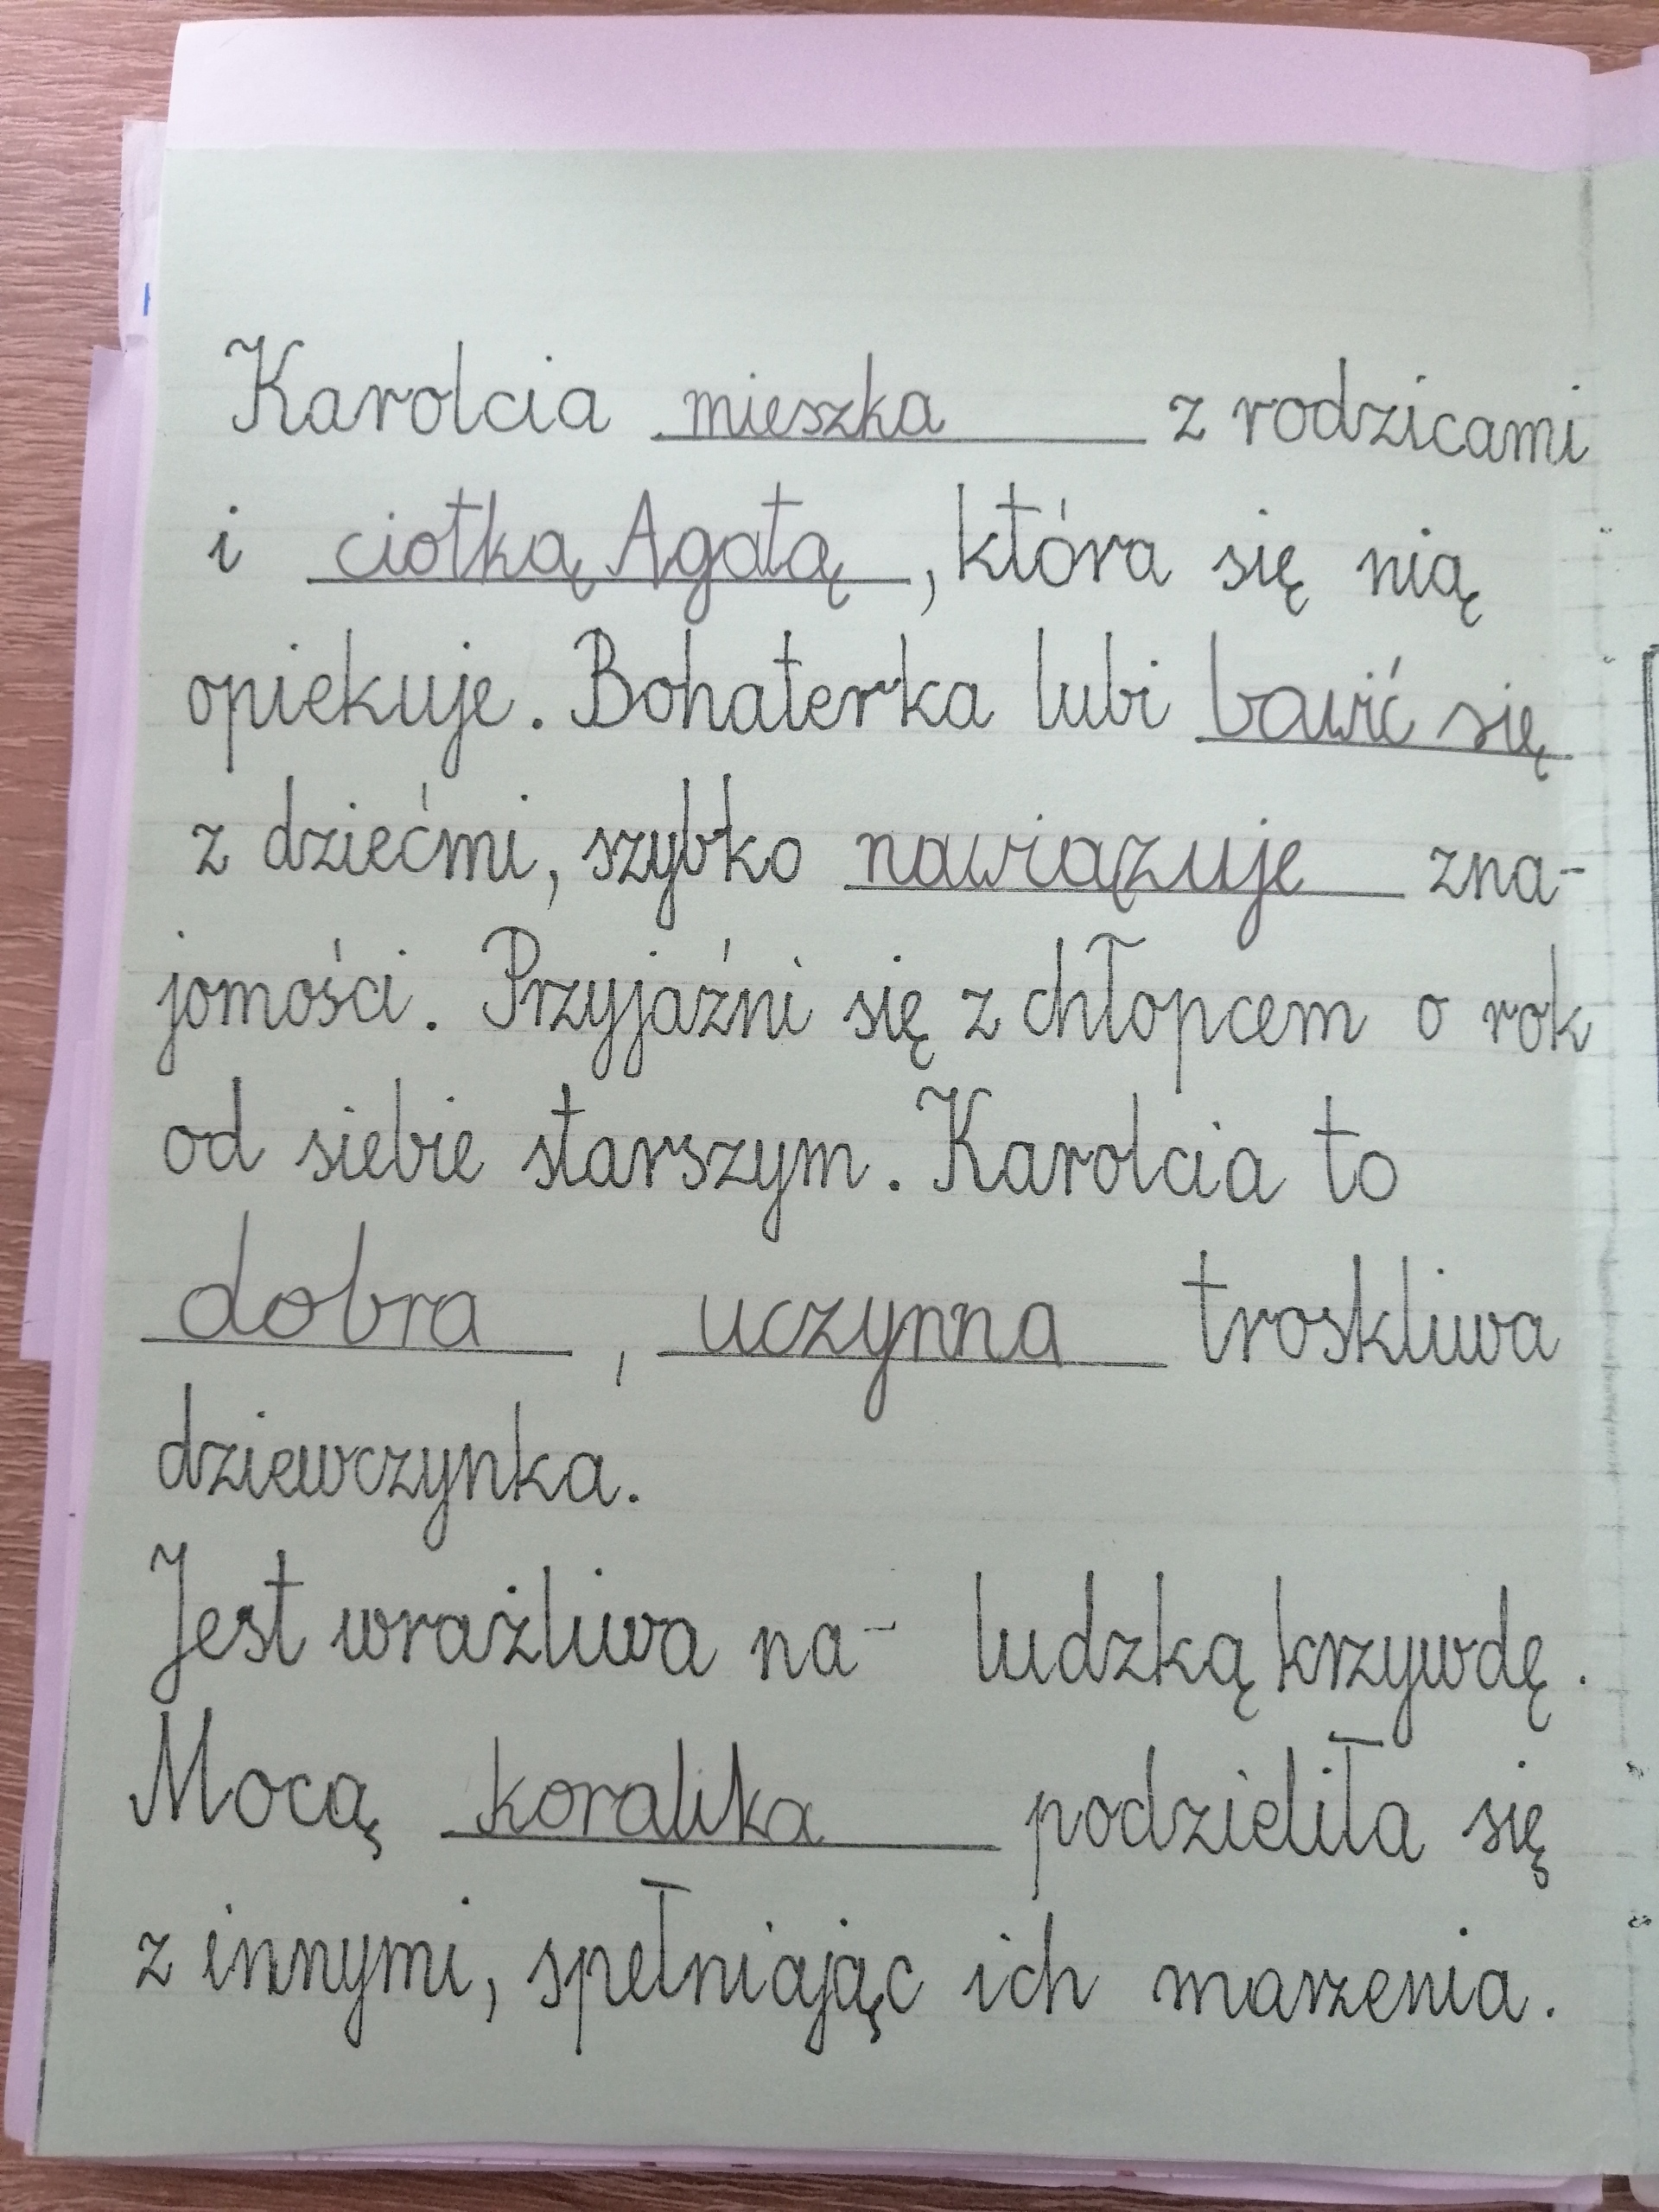 Karolcia mieszka z rodzicami
i ciotką Agatą, która się nią
opiekuje. Bohaterka lubi bawić się
z dziećmi, szybko nawiązuje zna-
jomości. Przyjaźni się z chłopcem o rok
od siebie starszym. Karolcia to
dobra, uczynna troskliwa
dziewczynka.
Jest wrażliwa na- ludzką krzywdę.
Mocą koralika podzieliła się
z innymi, spełniając ich marzenia.